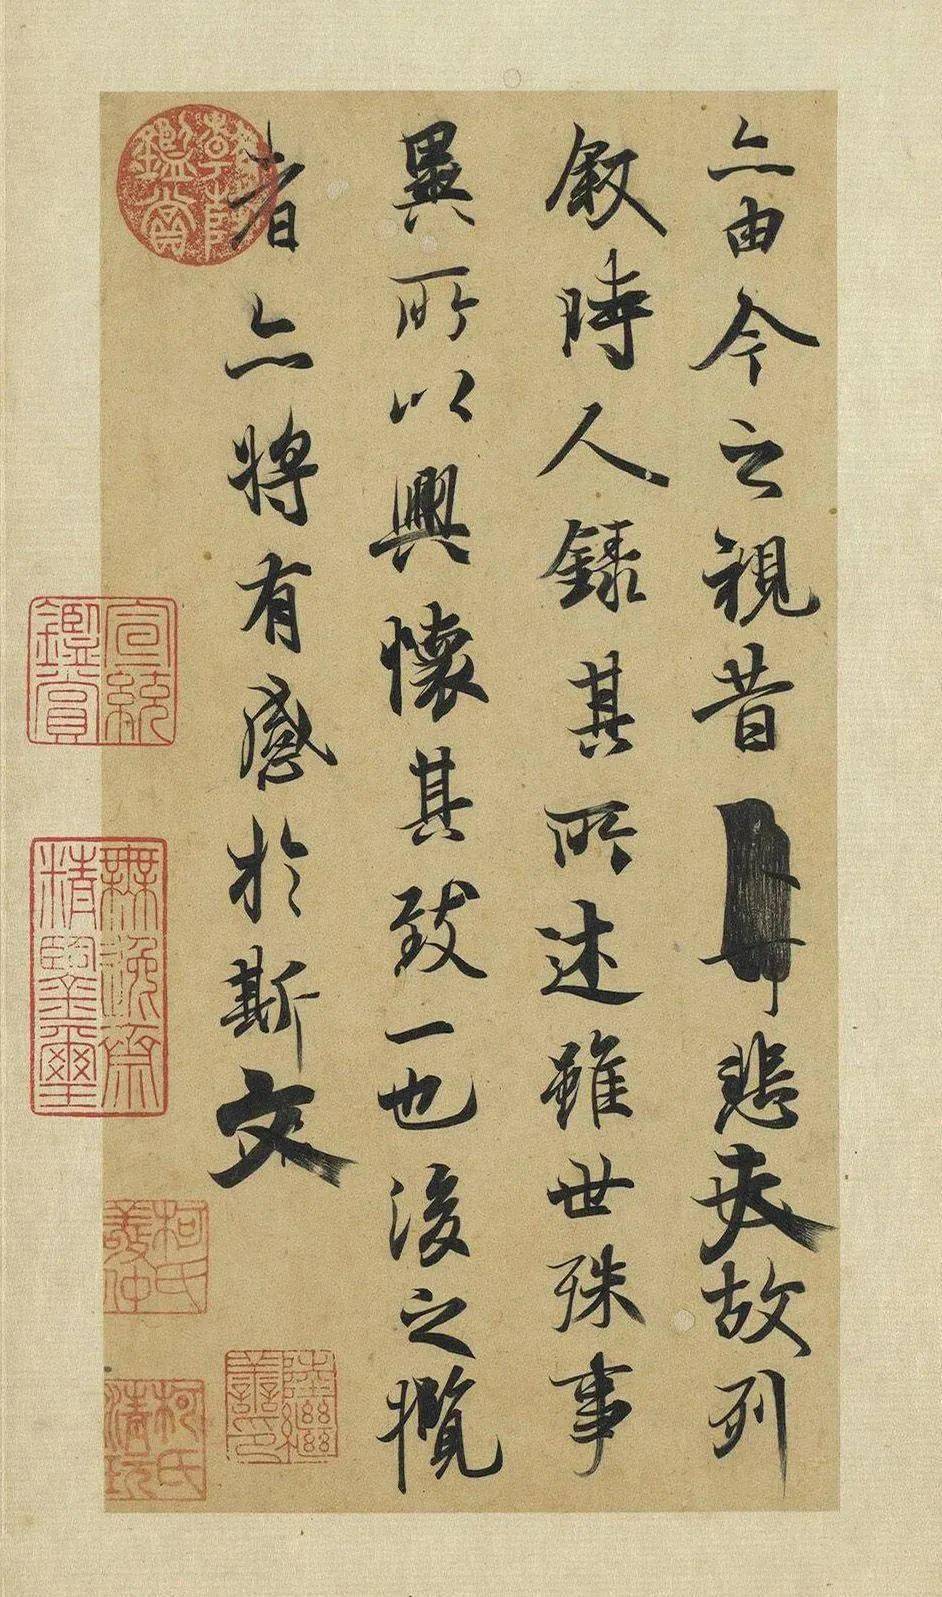 亦由今之視昔悲夫故列
叙時人錄其所述雖世殊事
異所以興懷其致一也後之攬
者亦將有感於斯文
乾隆鑑賞
宣統鑑賞
無逸齋精鑒璽
柯氏敬仲
柯氏清玩
陸繼善印